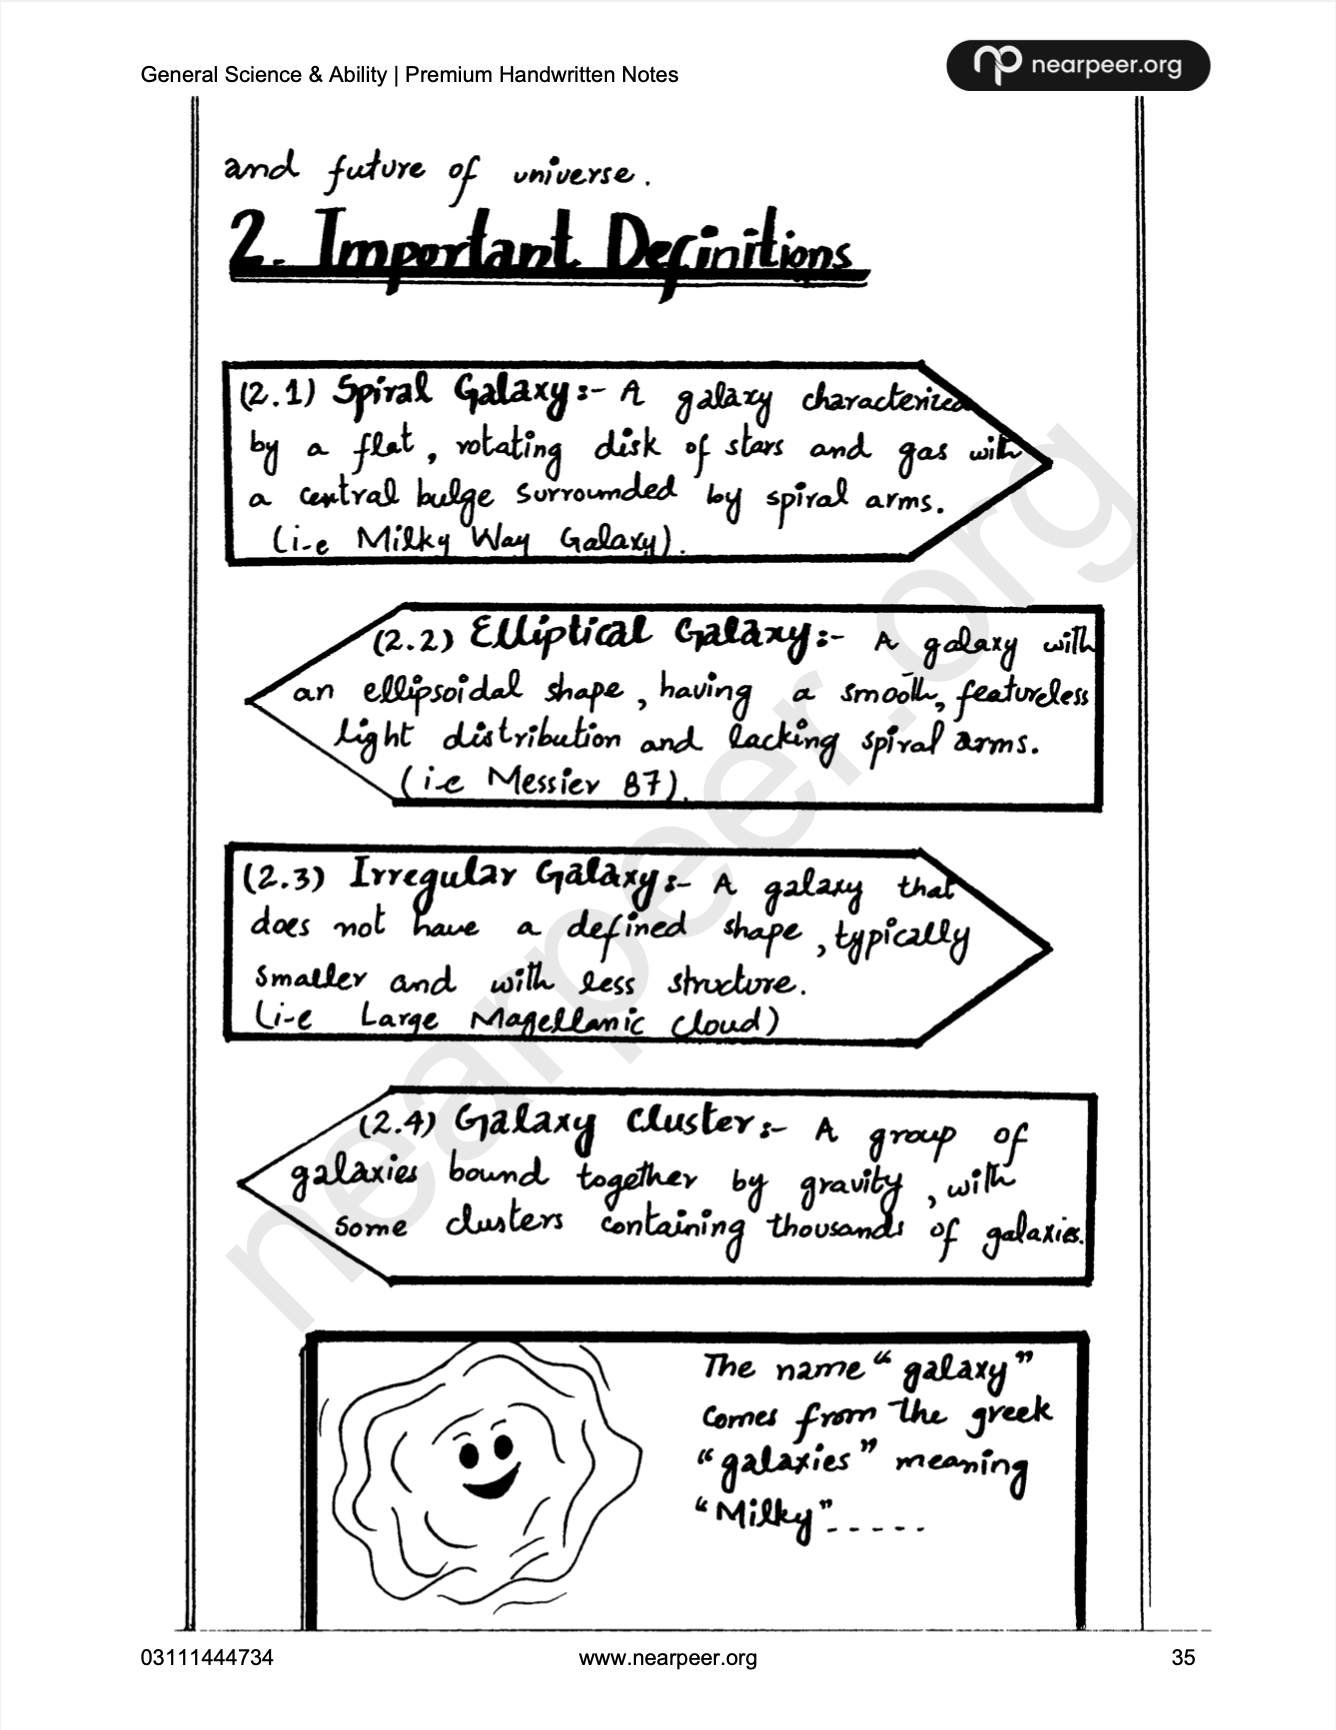 General Science & Ability | Premium Handwritten Notes
nearpeer.org
and future of universe.
2. Important Definitions
(2.1) Spiral Galaxy:- A galaxy characterized
by a flat, rotating disk of stars and gas with
a central bulge surrounded by spiral arms.
(i-e Milky Way Galaxy).
(2.2) Elliptical Galaxy:- A galaxy with
an ellipsoidal shape, having a smooth, featureless
light distribution and lacking spiral arms.
(i-e Messier 87).
(2.3) Irregular Galaxy:- A galaxy that
does not have a defined shape, typically
smaller and with less structure.
(i-e Large Magellanic Cloud)
(2.4) Galaxy Cluster:- A group of
galaxies bound together by gravity, with
some clusters containing thousands of galaxies.
The name "galaxy"
comes from the greek
"galaxies" meaning
"Milky".....
nearpeer.org
03111444734 www.nearpeer.org 35